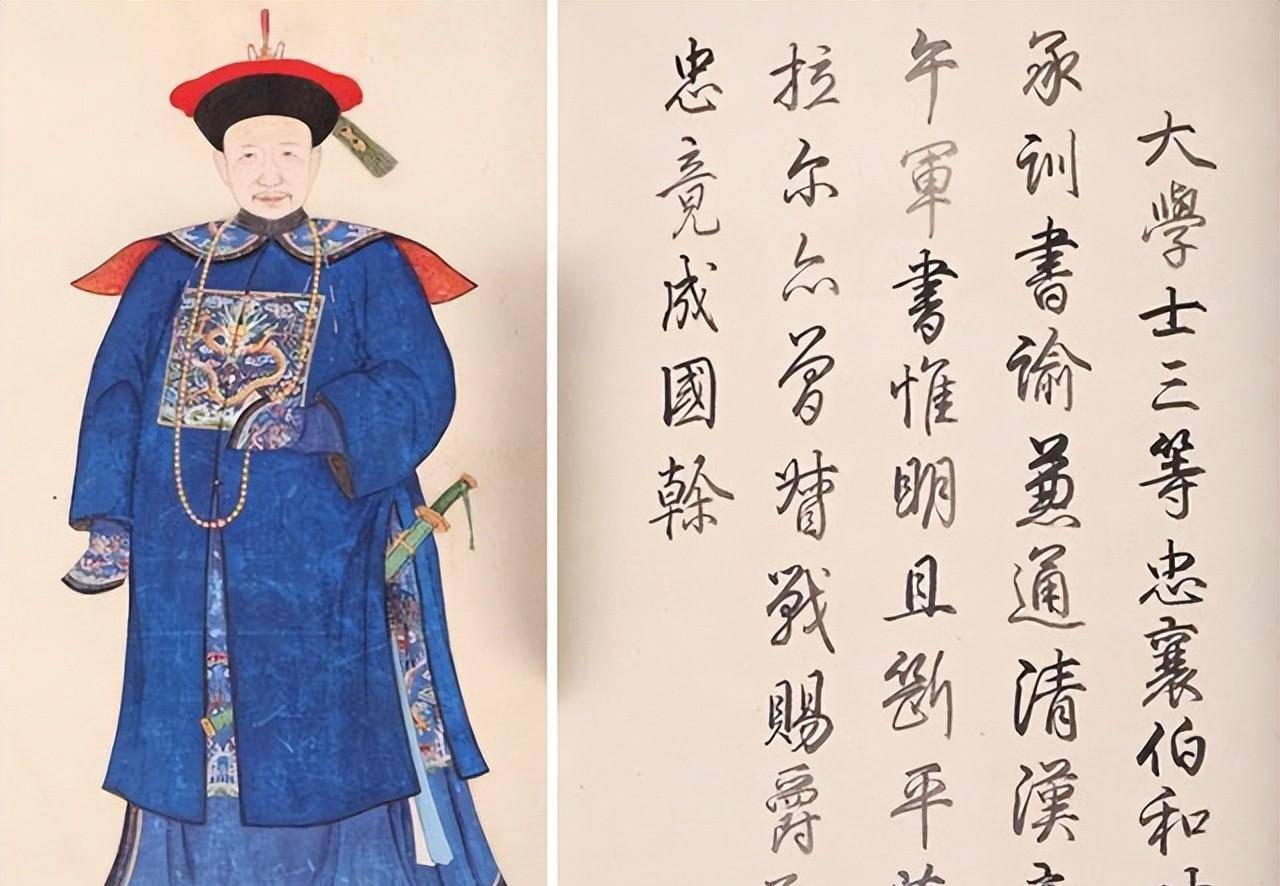 大學士三等忠襄伯和
承訓書諭兼通清漢
午軍書惟明且斷平
拉尔亦曾督戰賜爵
忠竟成國榦